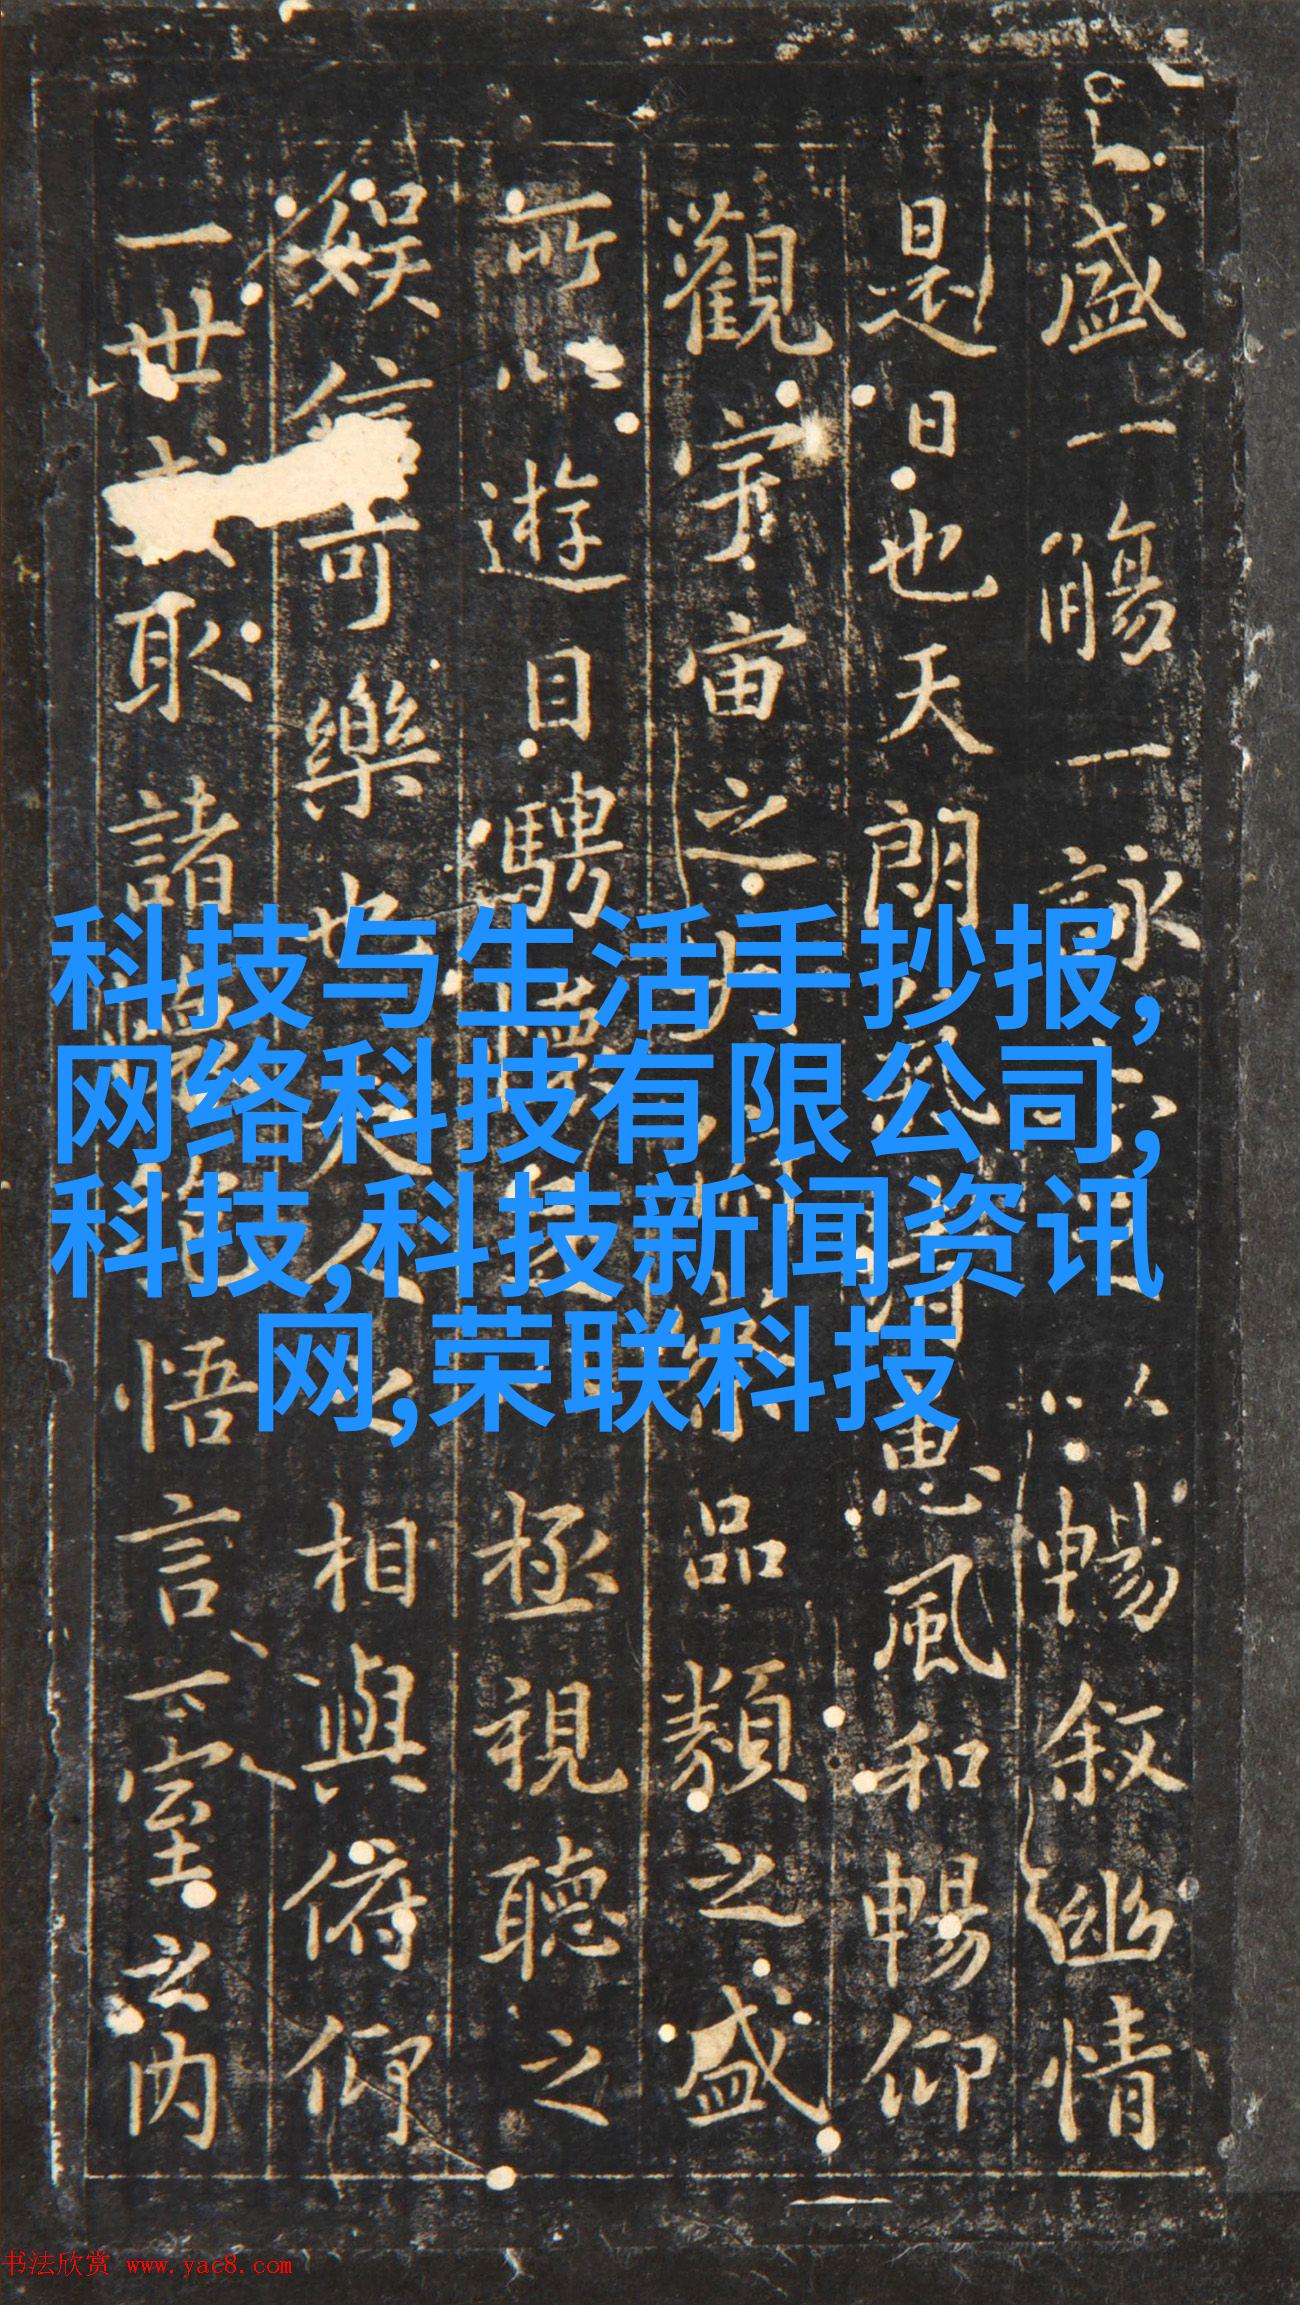 盛一觴一詠以暢叙幽情
是日也天朗惠風和暢仰
觀宇宙之品類之盛
所以遊目騁極視聽之
娛信可樂也夫人相與俯仰
一世取諸悟言一室之内
科技与生活手抄报,
网络科技有限公司,
科技,科技新闻资讯
网,荣联科技
书法欣赏 www.yac8.com